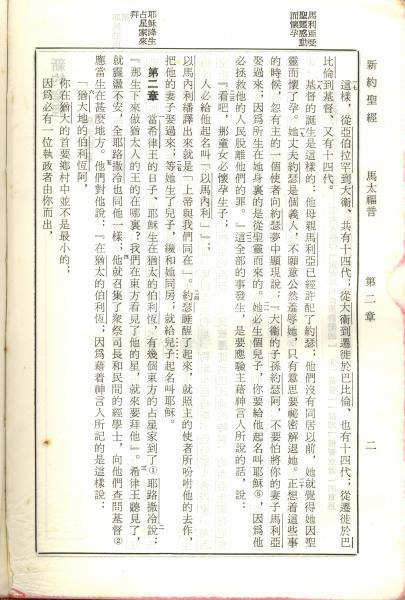 新約聖經　馬太福音　第二章　二
馬利亞受
聖靈感動
而懷孕
耶穌降生
占星家來
拜
這樣，從亞伯拉罕到大衛、共有十四代；從大衛到遷徙於巴比倫、也有十四代；從遷徙於巴
比倫到基督、又有十四代。
基督的誕生是這樣的：他母親馬利亞已經許配了約瑟；他們沒有同居以前，她就覺得她因聖
靈而懷了孕。她丈夫約瑟是個義人，不願意公然羞辱她，只有意思要祕密解退她。正想着這些事
的時候，忽有主的一個使者向約瑟夢中顯現說：『大衛的子孫約瑟阿，不要怕將你的妻子馬利亞
娶過來；因爲所生在她身裏的是從聖靈而來的。她必生個兒子，你要給他起名叫耶穌⑤，因爲他
必拯救他的人民脫離他們的罪。』這全部的事發生，是要應驗主藉神言人所說的話，說：
『看吧，那童女必懷孕生子；
人必給他起名叫「以馬內利」』；
以馬內利繙譯出來就是『上帝與我們同在』。約瑟睡醒了起來，就照主的使者所吩咐他的去作，
把他的妻子娶過來；等她生了兒子，纔和她同房；就給兒子起名叫耶穌。
第二章　當希律王的日子、耶穌生在猶太的伯利恆，有幾個東方的占星家到了①耶路撒冷說：
『那生下來做猶太人的王的在哪裏？我們在東方看見了他的星，就來要拜他』。希律王聽見了，
就震盪不安，全耶路撒冷也同他一樣；他就召集了衆祭司長和民間的經學士，向他們查問基督②
應當生在甚麼地方。他們對他說：『在猶太的伯利恆；因爲藉着神言人所記的是這樣說：
「猶大地的伯利恆阿，
你在猶大的首要鄉村中並不是最小的；
因爲必有一位執政者由你而出，